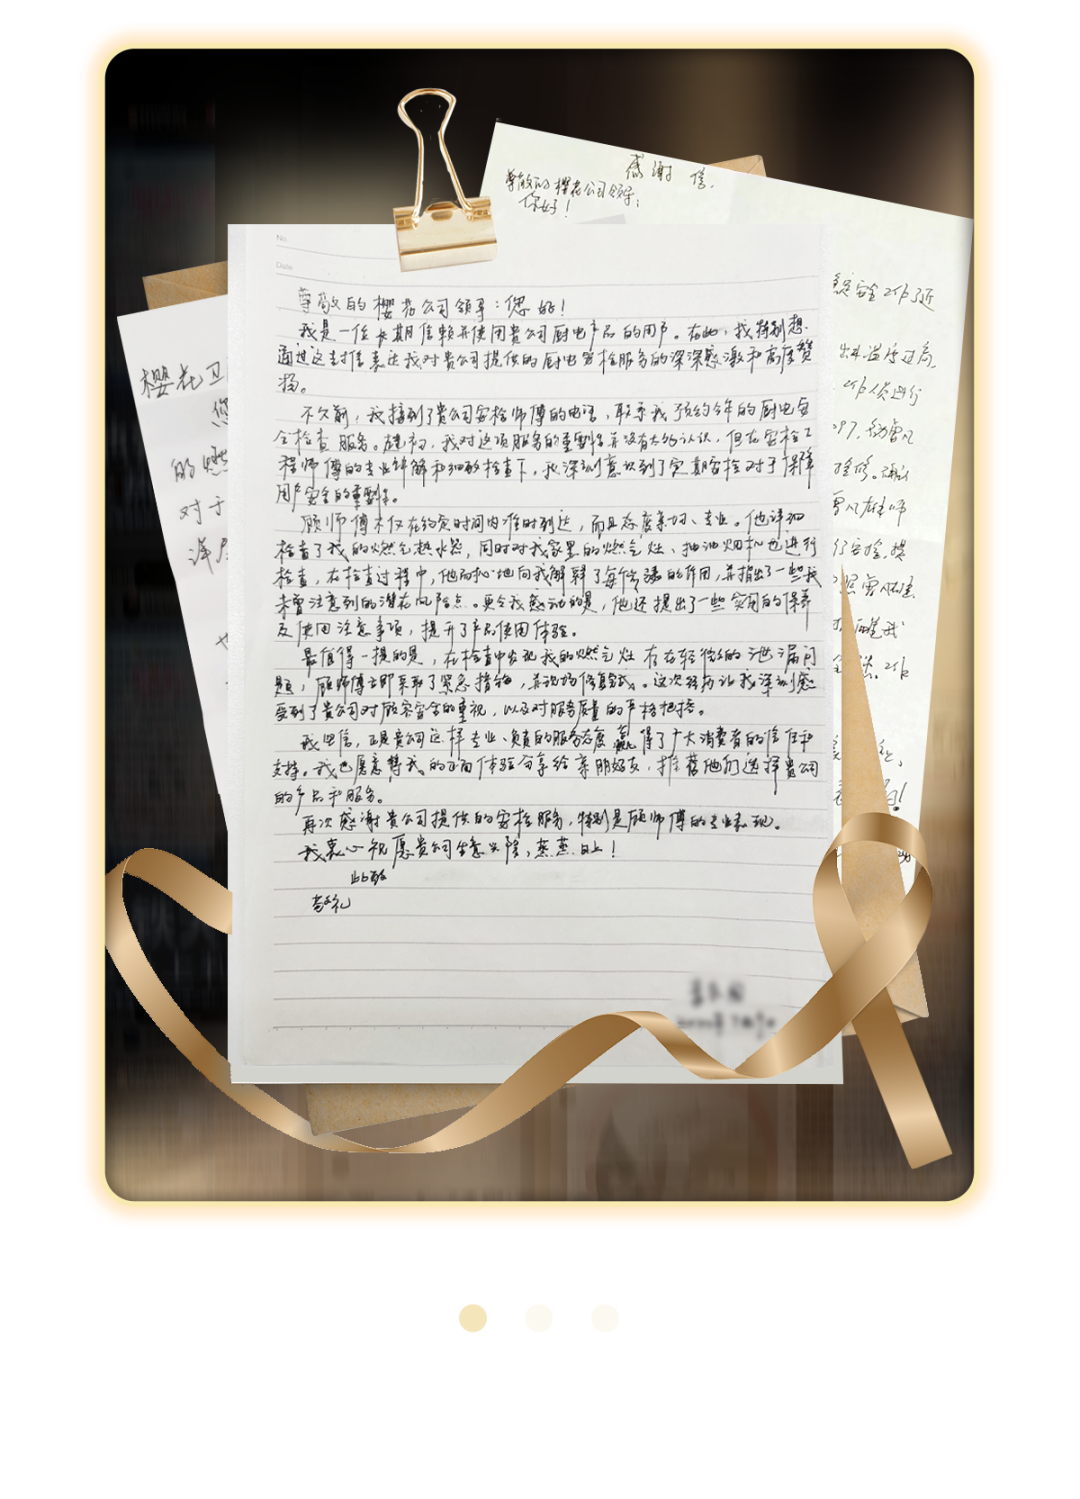 感谢信.
尊敬的樱花公司领导:
你好!
No.
Date
尊敬的樱花公司领导:您好!
我是一位长期信赖并使用贵公司厨电产品的用户。在此,我特别想
通过这封信表达我对贵公司提供的厨电安检服务的深深感激和高度赞
扬。
不久前,我接到了贵公司安检师傅的电话,联系我预约今年的厨电安
全检查服务。起初,我对这项服务的重要性并没有太多认识,但在安检工
程师傅的专业讲解和细致检查下,我深刻意识到了定期安检对于保障
用户安全的重要性。
顾师傅不仅在约定时间内准时到达,而且态度亲切、专业。他详细
检查了我的燃气热水器,同时对我家里的燃气灶、抽油烟机也进行
检查,在检查过程中,他耐心地向我解释了每个步骤的作用,并指出了一些我
未曾注意到的潜在风险点。更令我感动的是,他还提出了一些实用的保养
及使用注意事项,提升了产品使用体验。
最值得一提的是,在检查中发现我的燃气灶存在轻微的泄漏问
题,顾师傅立即采取了紧急措施,并现场修复完成。这次经历让我深刻感
受到了贵公司对顾客安全的重视,以及对服务质量的严格把控。
我坚信,正是贵公司这样专业、负责的服务态度赢得了广大消费者的信任和
支持。我也愿意将我的正面体验分享给亲朋好友,推荐他们选择贵公司
的产品和服务。
再次感谢贵公司提供的安检服务,特别是顾师傅的专业表现。
我衷心祝愿贵公司生意兴隆,蒸蒸日上!
此致
敬礼
樱花卫
您
的燃
对于